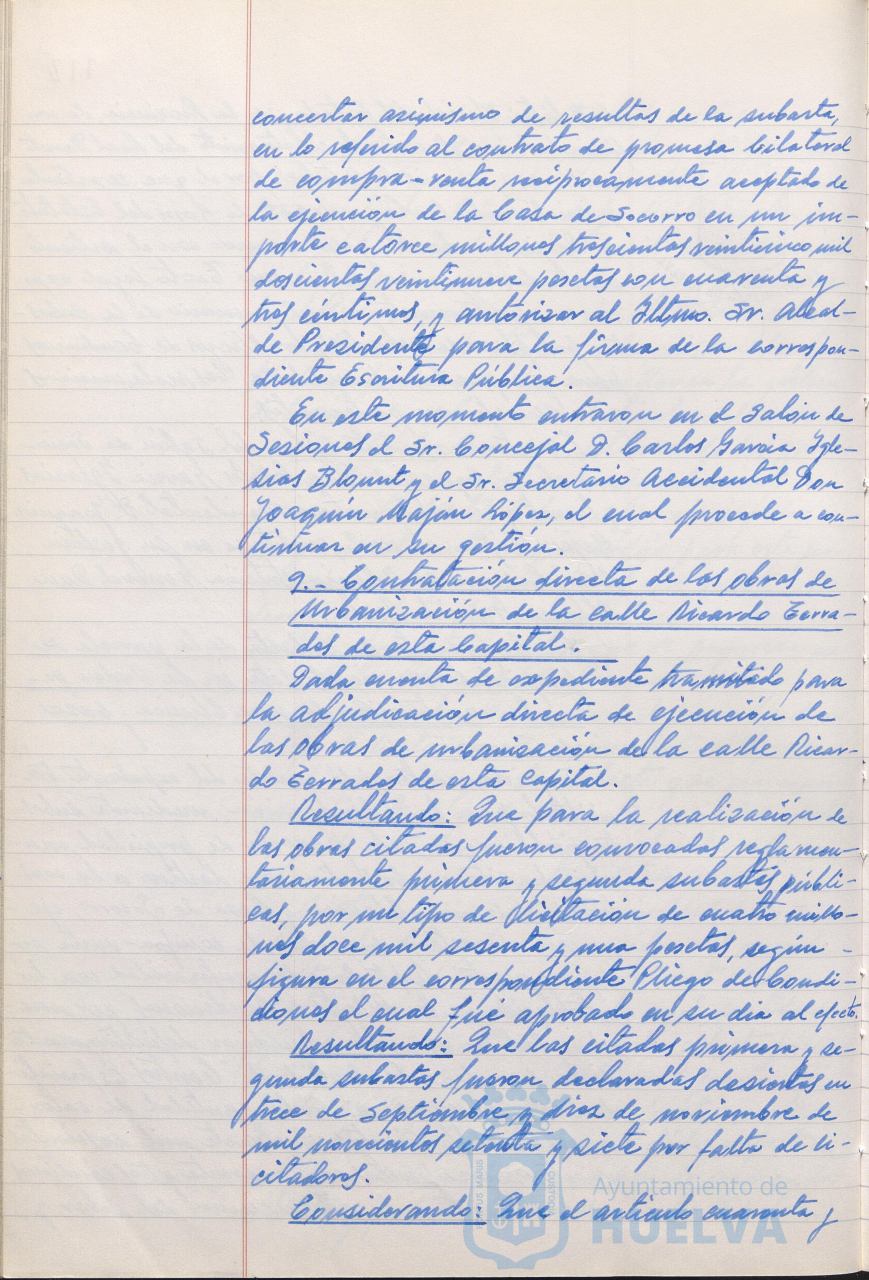 concertar asimismo de resultas de la subasta,
en lo referido al contrato de promesa bilateral
de compra-venta recíprocamente aceptado de
la ejecución de la Casa de Socorro en un im-
porte catorce millones trescientas veinticinco mil
doscientas veintinueve pesetas con cuarenta y
tres céntimos, y autorizar al Iltmo. Sr. Alcal-
de Presidente para la firma de la correspon-
diente Escritura Pública.
En este momento entraron en el Salón de
Sesiones el Sr. Concejal D. Carlos García Igle-
sias Blount y el Sr. Secretario Accidental Don
Joaquín Maján López, el cual procede a con-
tinuar en su gestión.
9.- Contratación directa de las obras de
Urbanización de la calle Ricardo Terra-
des de esta Capital.
Dada cuenta de expediente tramitado para
la adjudicación directa de ejecución de
las obras de urbanización de la calle Ricar-
do Terrades de esta Capital.
Resultando: Que para la realización de
las obras citadas fueron convocadas reglamen-
tariamente primera y segunda subastas públi-
cas, por un tipo de licitación de cuatro millo-
nes doce mil sesenta y una pesetas, según -
figura en el correspondiente Pliego de Condi-
ciones el cual fué aprobado en su dia al efecto.
Resultando: Que las citadas primera y se-
gunda subastas fueron declaradas desiertas en
trece de Septiembre y diez de noviembre de
mil novecientos setenta y siete por falta de li-
citadores.
Considerando: Que el artículo cuarenta y
Ayuntamiento de
HUELVA